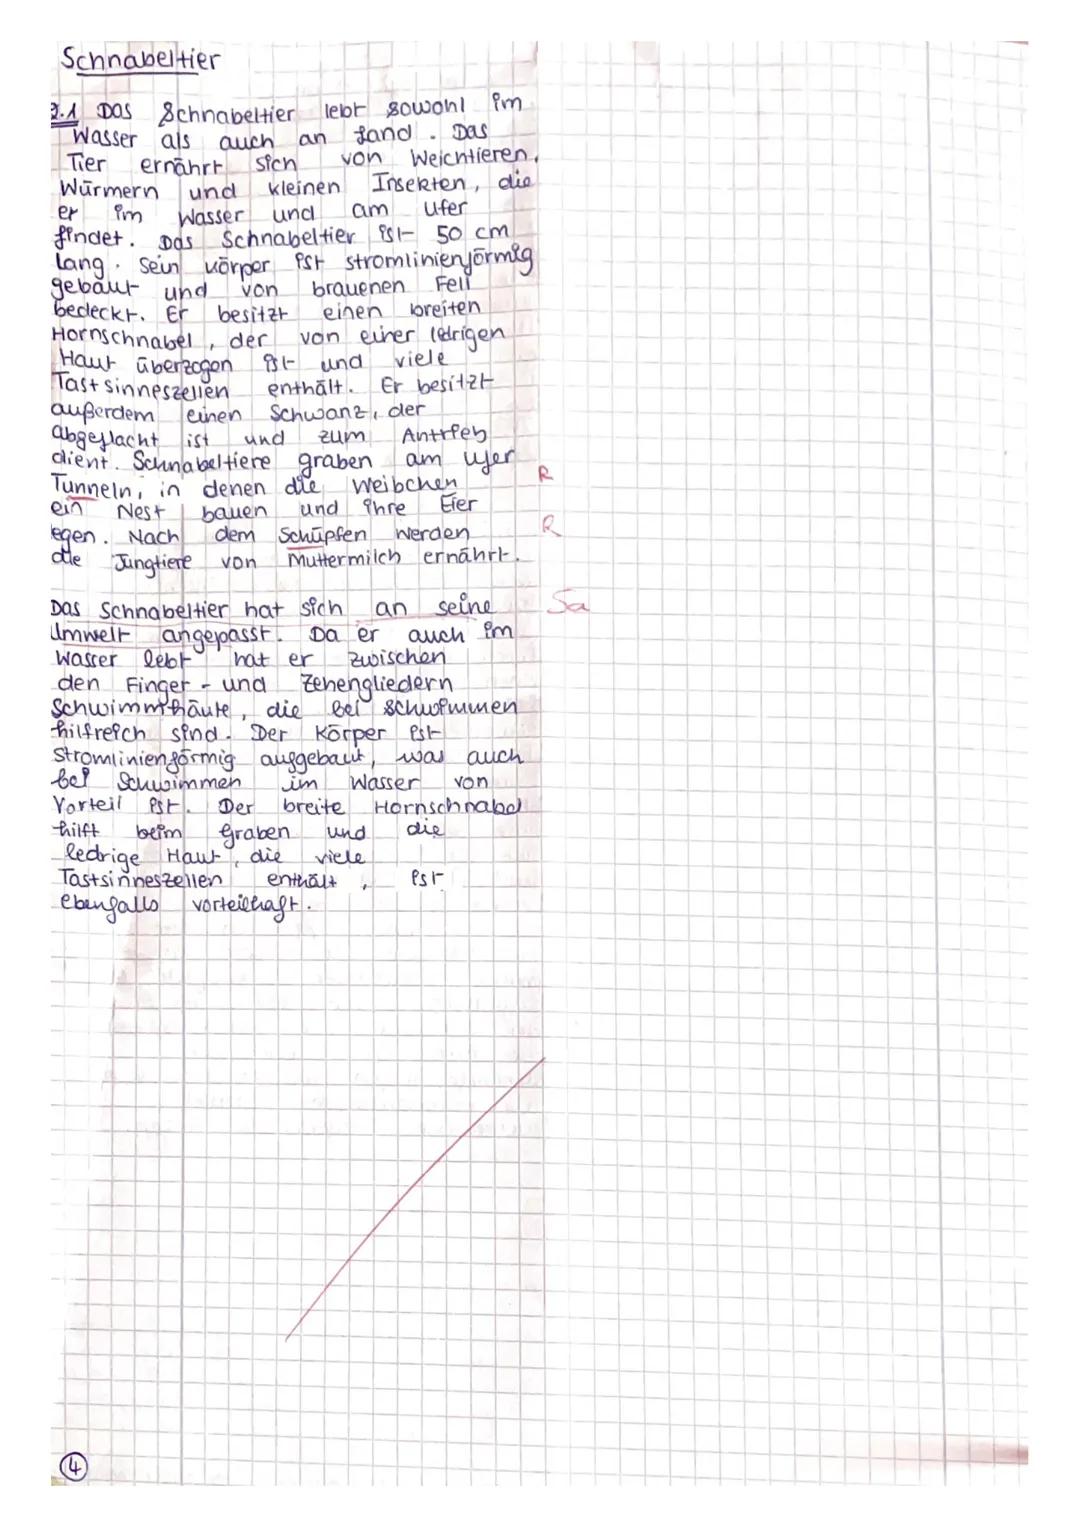 Schnabeltier
2.1 Das Schnabeltier lebt sowohl im
Wasser als auch an Land. Das
Tier ernährt sich von Weichtieren,
Würmern und kleinen Insekten, die
er im Wasser und am Ufer
findet. Das Schnabeltier ist 50 cm
lang. Sein Körper ist stromlinienförmig
gebaut und von brauenen Fell
bedeckt. Er besitzt einen breiten
Hornschnabel, der von einer ledrigen
Haut überzogen ist und viele
Tastsinneszellen enthält. Er besitzt
außerdem einen Schwanz, der
abgeflacht ist und zum Antrieb
dient. Schnabeltiere graben am Ufer
Tunneln, in denen die Weibchen R
ein Nest bauen und ihre Eier
legen. Nach dem Schüpfen werden R
die Jungtiere von Muttermilch ernährt.
Das Schnabeltier hat sich an seine Sa
Umwelt angepasst. Da er auch im
Wasser lebt hat er zwischen
den Finger- und Zehengliedern
Schwimmhäute, die bei schwimmen
hilfreich sind. Der Körper ist
stromlinienförmig aufgebaut, was auch
bei Schwimmen im Wasser von
Vorteil ist. Der breite Hornschnabel
hilft beim graben und die
ledrige Haut, die viele
Tastsinneszellen enthält, ist
ebenfalls vorteilhaft.
4